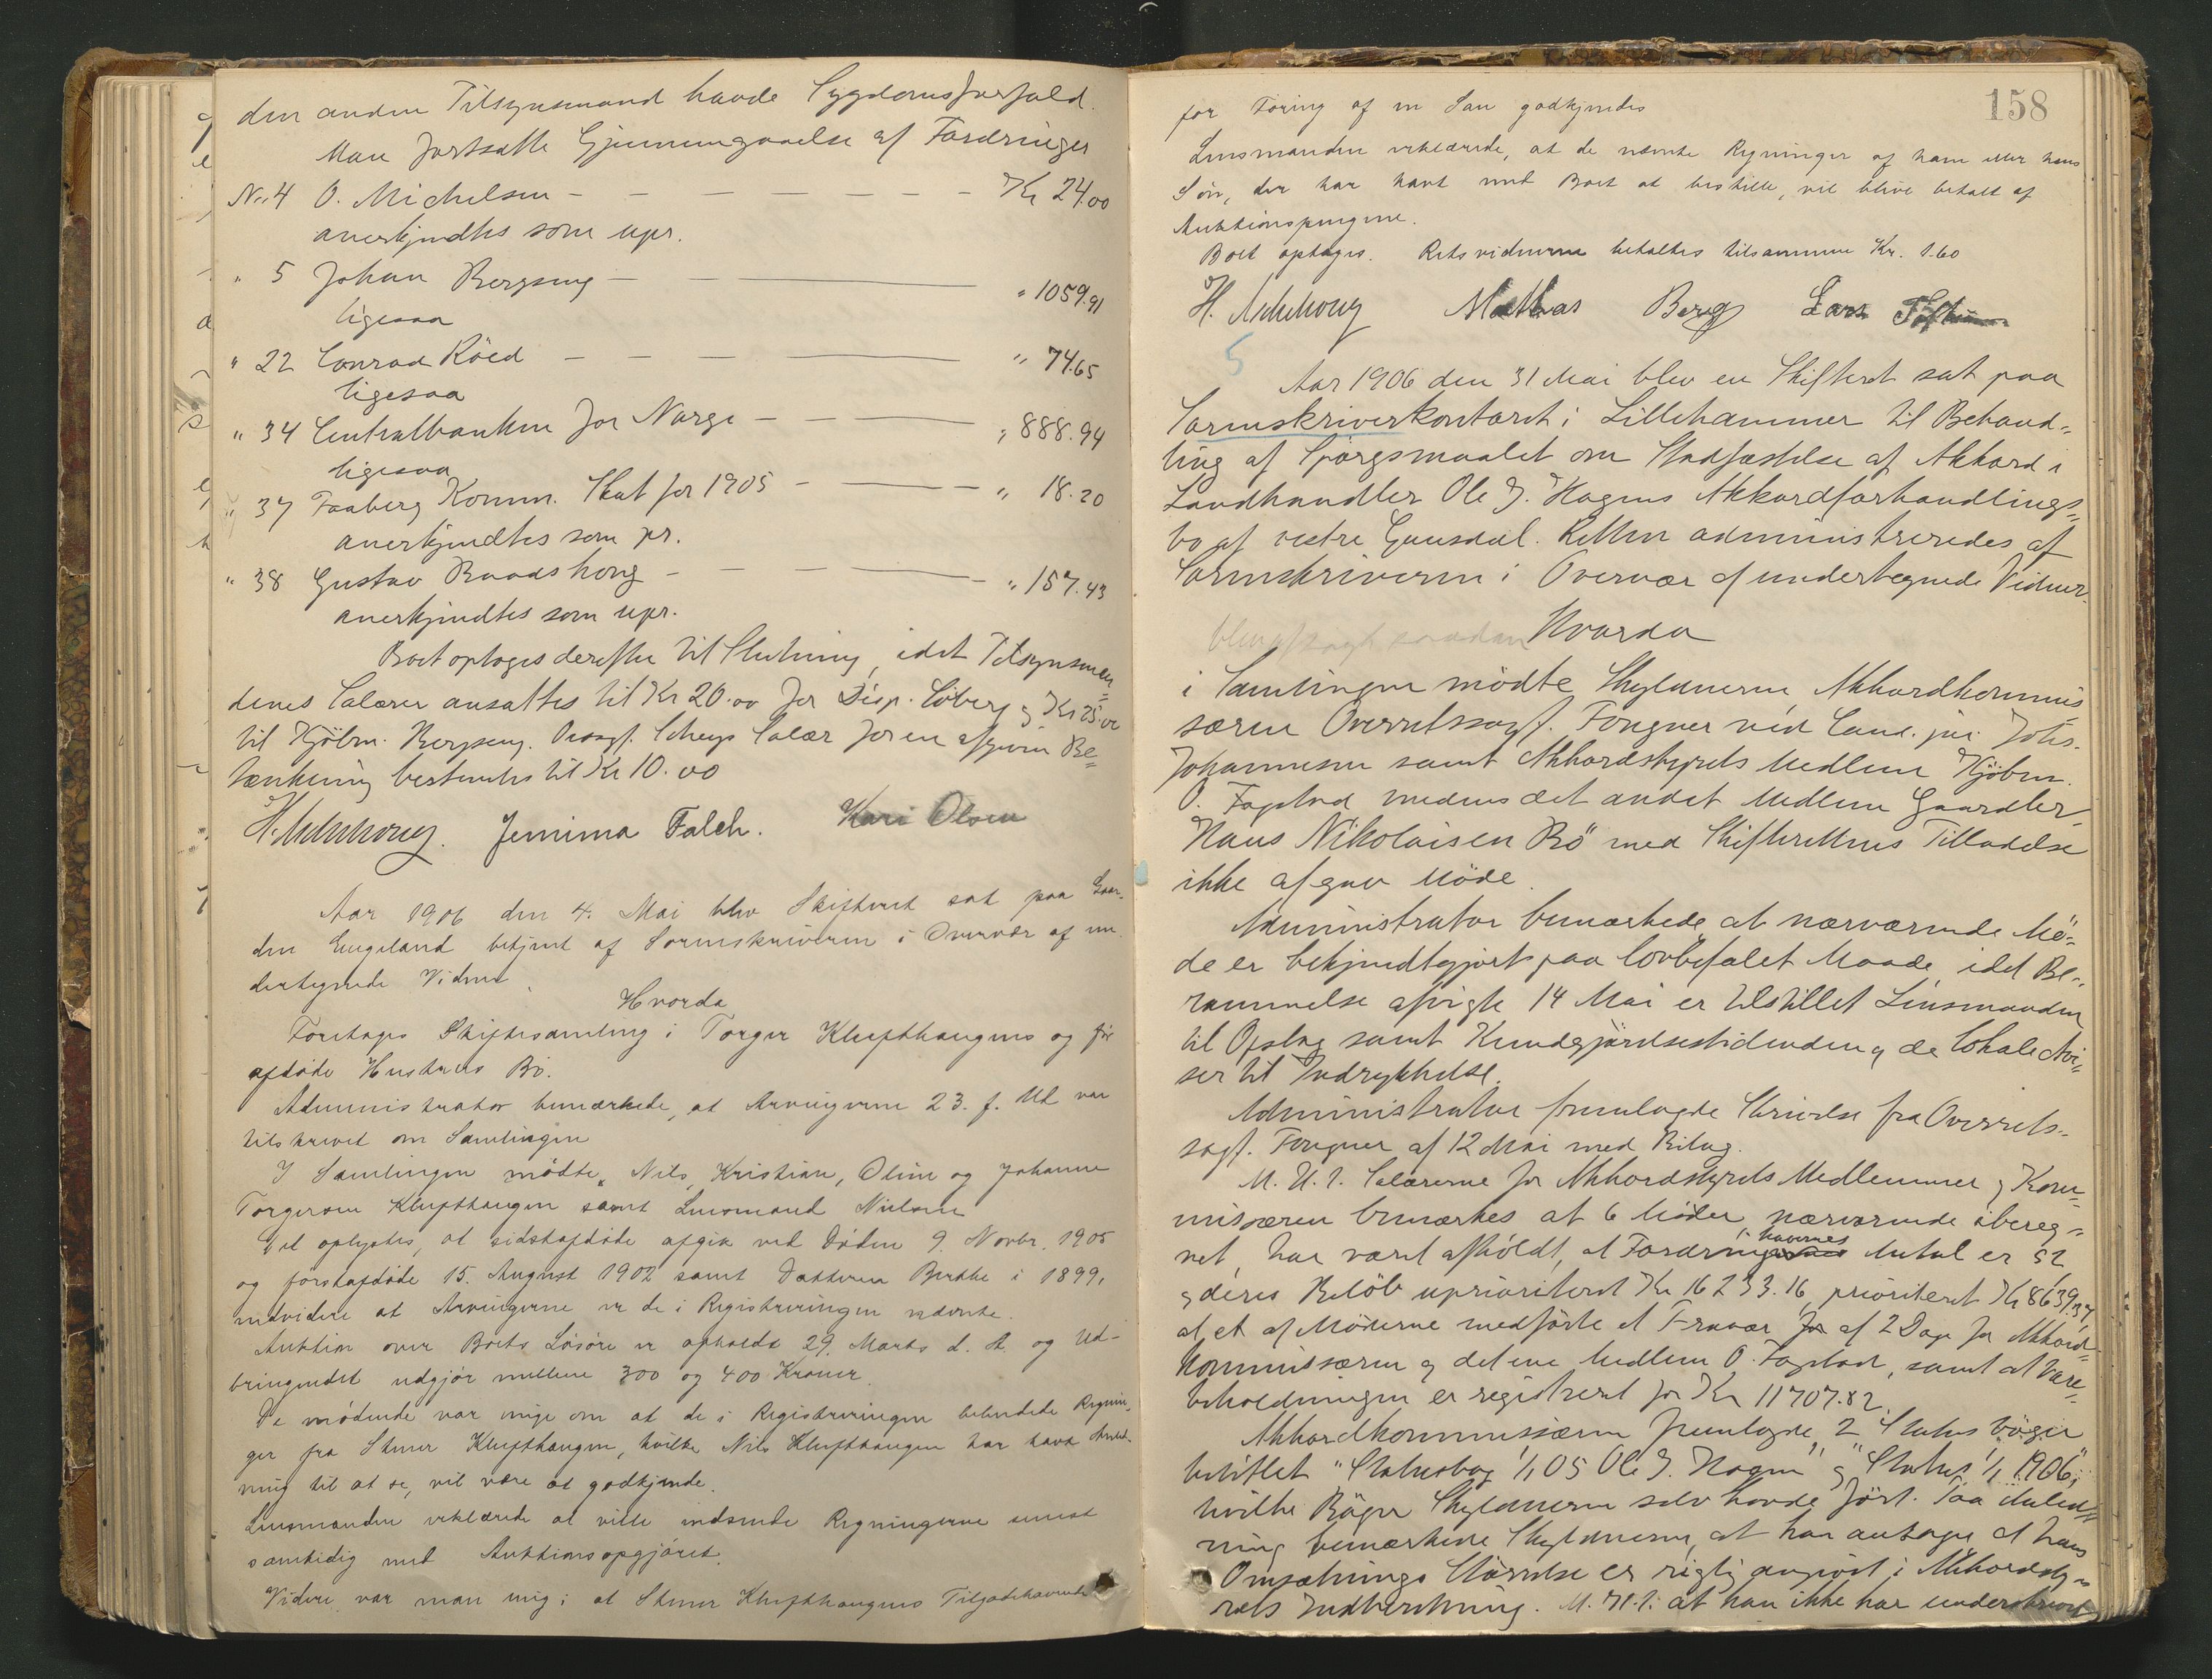 den anden Tilsynsmand havde Sygdomsforfald.
Man fortsatte Gjennemgaaelse af Fordringer
No. 4 O. Michelsen - Kr 24.00
anerkjendtes som upr.
" 5 Johan Bergseng - " 1059.91
ligesaa
" 22 Conrad Röed - " 74.65
ligesaa
" 34 Centralbanken for Norge - " 888.94
ligesaa
" 37 Faaberg Komm. Skat for 1905 - " 18.20
anerkjendtes som pr.
" 38 Gustav Baadshoug - " 157.43
anerkjendtes som upr.
Boet optoges derefter til Slutning, idet Tilsynsmæn=
denes Salærer ansattes til Kr 20.00 for Disp. Loberg og Kr 25.00
til Kjöbm. Bergseng. Ovrsgf. Salær for en afgiven Be=
tænkning bestemtes til Kr 10.00
H. Aschehoug. Jemima Falch. Kari Olsen
Aar 1906 den 4. Mai blev Skifteret sat paa Gaar-
den Engeland betjent af Sorenskriveren i Overvær af un-
dertegnede Vidner.
Hvorda
Foretages Skiftesamling i Torger Klufthaugens og før
afdøde Hustrus Bo.
Administrator bemærkede, at Arvingerne 23. f. Md var
tilskrevet om Samlingen
I Samlingen mødte, Nils, Kristian, Oline og Johanne
Torgersen Klufthaugen samt Lensmand Nielsen
Det oplystes, at sidstafdøde afgik ved Døden 9. Novbr. 1905
og førstafdøde 15. August 1902 samt Datteren Berthe i 1899,
endvidere at Arvingerne er de i Registreringen nævnte.
Auktion over Boets Løsøre er afholdt 29. Marts d. A. og Ud-
bringendet udgjør mellem 300 og 400 Kroner.
De mødende var enige om at de i Registreringen bebudede Regnin-
ger fra Stener Klufthaugen, hvilke Nils Klufthaugen har havt Anled-
ning til at se, vil være at godkjende.
Lensmanden erklærede at ville indsende Regningerne senest
samtidig med Auktionsopgjøret.
Videre var man enig i at Stener Klufthaugens Tilgodehavende
158
for Foring af en Sau godkjendes
Lensmanden erklærede, at de nævnte Regninger af ham eller hans
Søn, der har havt med Boet at bestille, vil blive betalt af
Auktionspengene.
Boet optages. Retsvidnerne betaltes tilsammen Kr. 1.60
H. Aschehoug Mathias Berg Lars
5
Aar 1906 den 31 Mai blev en Skifteret sat paa
Sorenskriverkontoret i Lillehammer til Behand=
ling af Spørgsmaalet om Stadfæstelse af Akkord i
Landhandler Ole J. Hagens Akkordforhandlings=
bo af vestre Gausdal. Retten administreredes af
Sorenskriveren i Overvær af undertegnede Vidner.
Hvorda
i Samlingen mödte Skyldneren, Akkordkommis
særen Overretssagf. Fougner ved Cand. jur. Johs.
Johannesen samt Akkordstyrets Medlem Kjöbm.
O. Fagstad medens det andet Medlem Gaardbr.
Hans Nikolaisen Bö med Skifterettens Tilladelse
ikke afgav Möde.
Administrator bemærkede, at nærværende Mö=
de er bekjendtgjort paa lovbefalet Maade, idet Be=
rammelse afvigte 14 Mai er tilstillet Lensmanden
til Opslag samt Kundgjörelsestidenden og de lokale Avi=
ser til Indrykkelse.
Administrator fremlagde Skrivelse fra Overrets=
sagf. Fougner af 12 Mai med Bilag.
M. H. t. Salærerne for Akkordstyrets Medlemmer og Kom=
missæren bemærkes at 6 Möder, nærværende ibereg=
net, har været afholdt, at Fordringshavernes Antal er 52
og deres Belöb uprioriteret Kr 16233.16, prioriteret Kr 8639.37,
at et af Möderne medförte et Fravær for af 2 Dage for Akkord=
kommissæren og det ene Medlem O. Fagstad, samt at Vare=
beholdningen er registreret for Kr 11707.82.
Akkordkommissæren fremlagde 2 Status böger
betitlet "Statusbog 1/1 05 Ole J. Hagen" og "Status 1/1 1906",
hvilke Böger Skyldneren selv havde fört. Paa Anled=
ning bemærkede Skyldneren, at han antager at hans
Omsætnings Störrelse er rigtig angivet i Akkordsty=
rets Indberetning. M. H. t. at han ikke har underskrevet